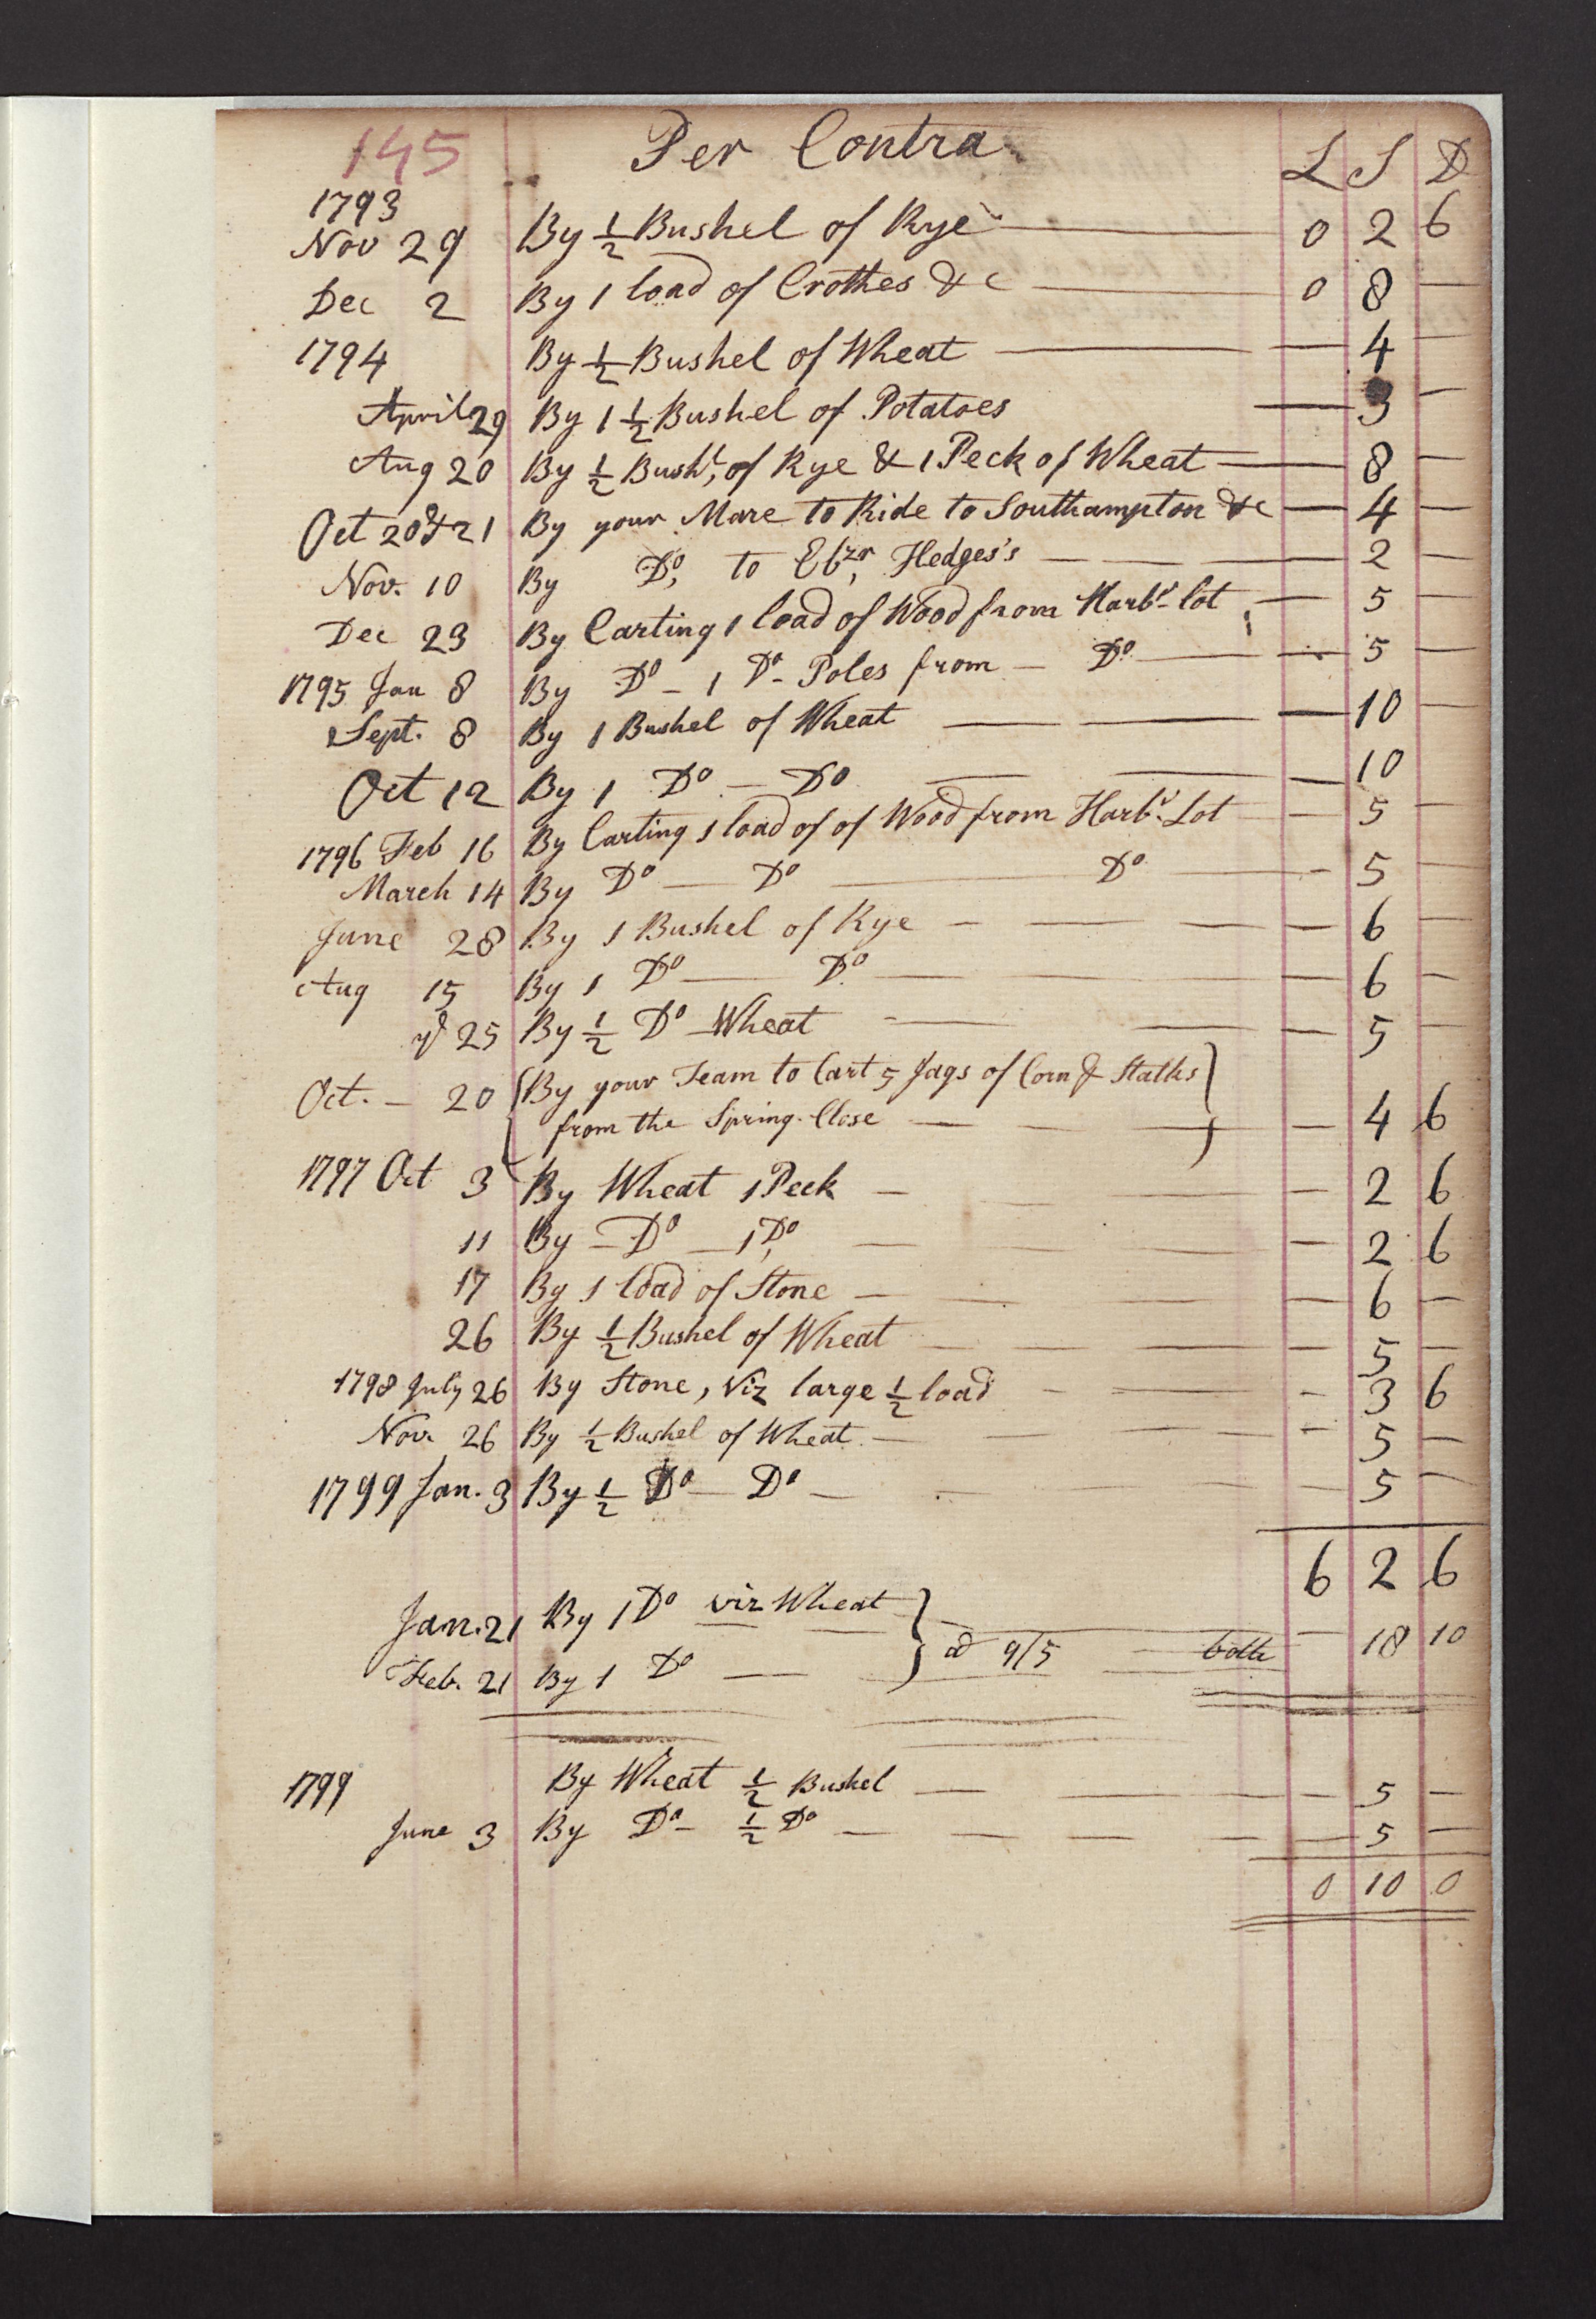 145 Per Contra L S D
1793
Nov 29 By ½ Bushel of Rye — 0 2 6
Dec 2 By 1 load of Crotches &c — 0 8 —
1794 By ½ Bushel of Wheat — — 4 —
April 29 By 1 ½ Bushel of Potatoes — 3 —
Aug 20 By ½ Bushl, of Rye & 1 Peck of Wheat — — 8 —
Oct 20 & 21 By your Mare to Ride to Southampton &c — 4 —
Nov. 10 By Do, to Ebzr, Hedges's — — — 2 —
Dec 23 By Carting 1 load of Wood from Harbr. lot — 5 —
1795 Jan 8 By Do – 1 Do – Poles from – Do — — 5 —
Sept. 8 By 1 Bushel of Wheat — — — 10 —
Oct 12 By 1 Do – Do — — — 10
1796 Feb 16 By Carting 1 load of of Wood from Harbr. Lot — 5 —
March 14 By Do — Do — Do — – 5 —
June 28 By 1 Bushel of Rye – — — — 6 —
Aug 15 By 1 Do — Do — — 6 —
25 By ½ Do Wheat – — — — 5 —
Oct. – 20 By your Team to Cart 5 Jags of Corn & Stalks
from the Spring-Close — — — — 4 6
1797 Oct 3 By Wheat 1 Peck – — — — 2 6
11 By – Do – 1 Do, — — — — 2 6
17 By 1 load of Stone — — — — 6 —
26 By ½ Bushel of Wheat — — — 5 —
1798 July 26 By Stone, Viz large ½ load – — – 3 6
Nov. 26 By ½ Bushel of Wheat. — — — – 5 —
1799 Jan. 3 By ½ Do – Do – — — 5 —
6 2 6
Jan. 21 By 1 Do viz Wheat
@ 9/5 — both — 18 10
Feb. 21 By 1 Do —
1799 By Wheat ½ Bushel — — — 5 —
June 3 By Do – ½ Do — — — — 5 —
0 10 0